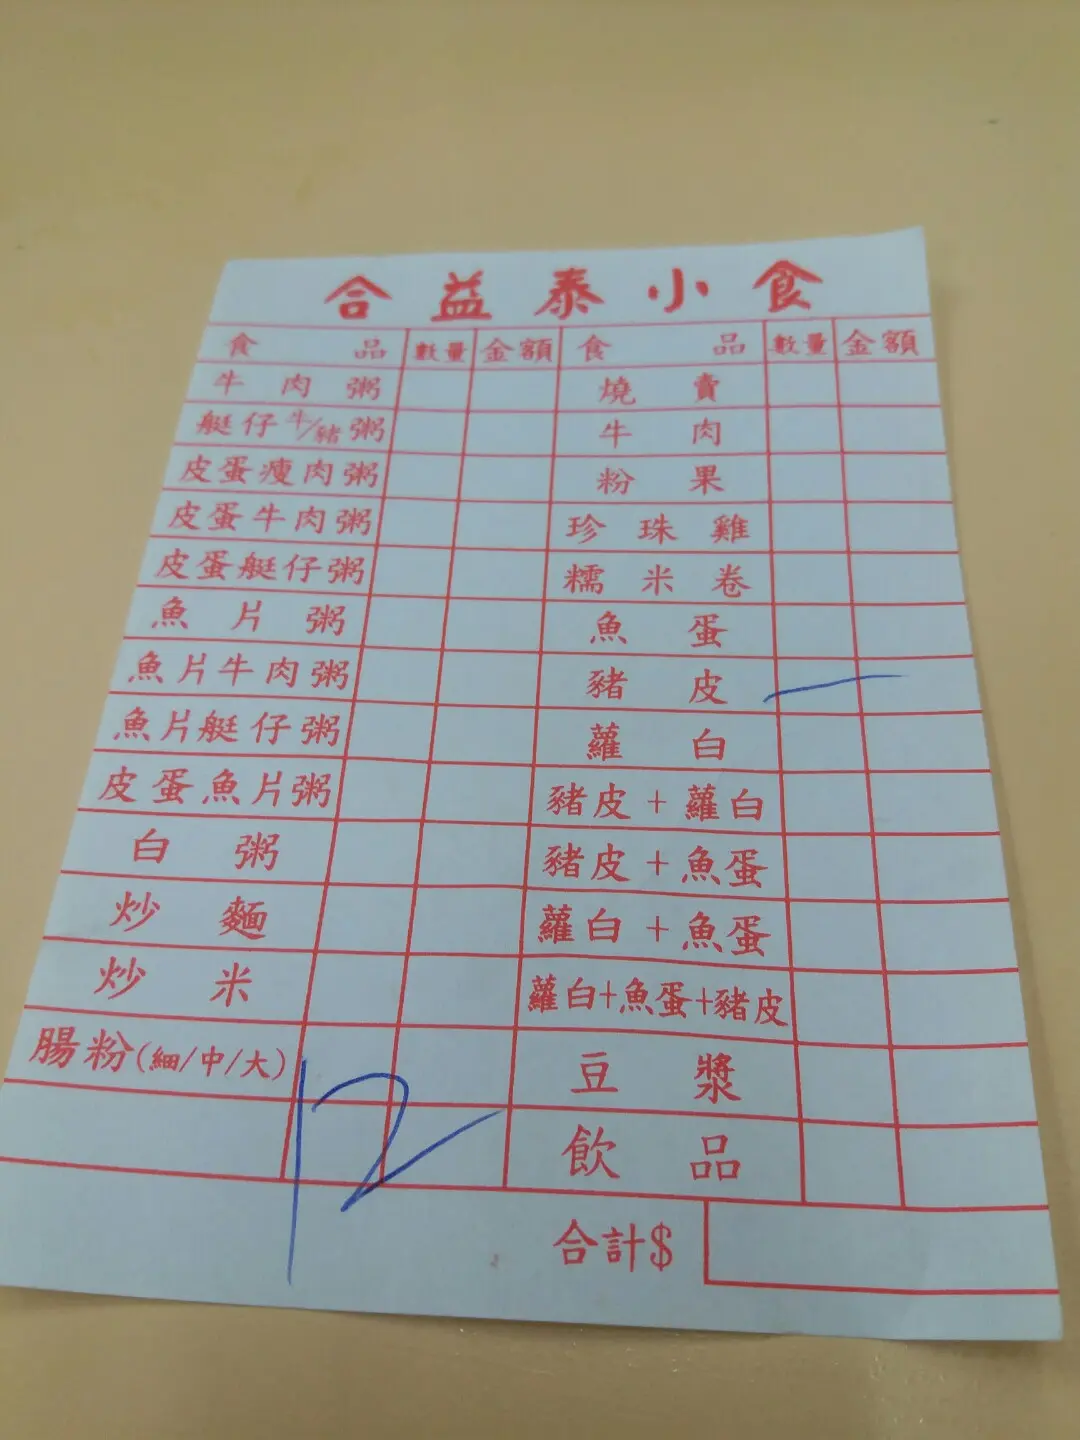 合益泰小食
食品 數量 金額 食品 數量 金額
牛肉粥 燒賣
艇仔牛/豬粥 牛肉
皮蛋瘦肉粥 粉果
皮蛋牛肉粥 珍珠雞
皮蛋艇仔粥 糯米卷
魚片粥 魚蛋
魚片牛肉粥 豬皮 一
魚片艇仔粥 蘿白
皮蛋魚片粥 豬皮+蘿白
白粥 豬皮+魚蛋
炒麵 蘿白+魚蛋
炒米 蘿白+魚蛋+豬皮
腸粉(細/中/大) 豆漿
12 飲品
合計$